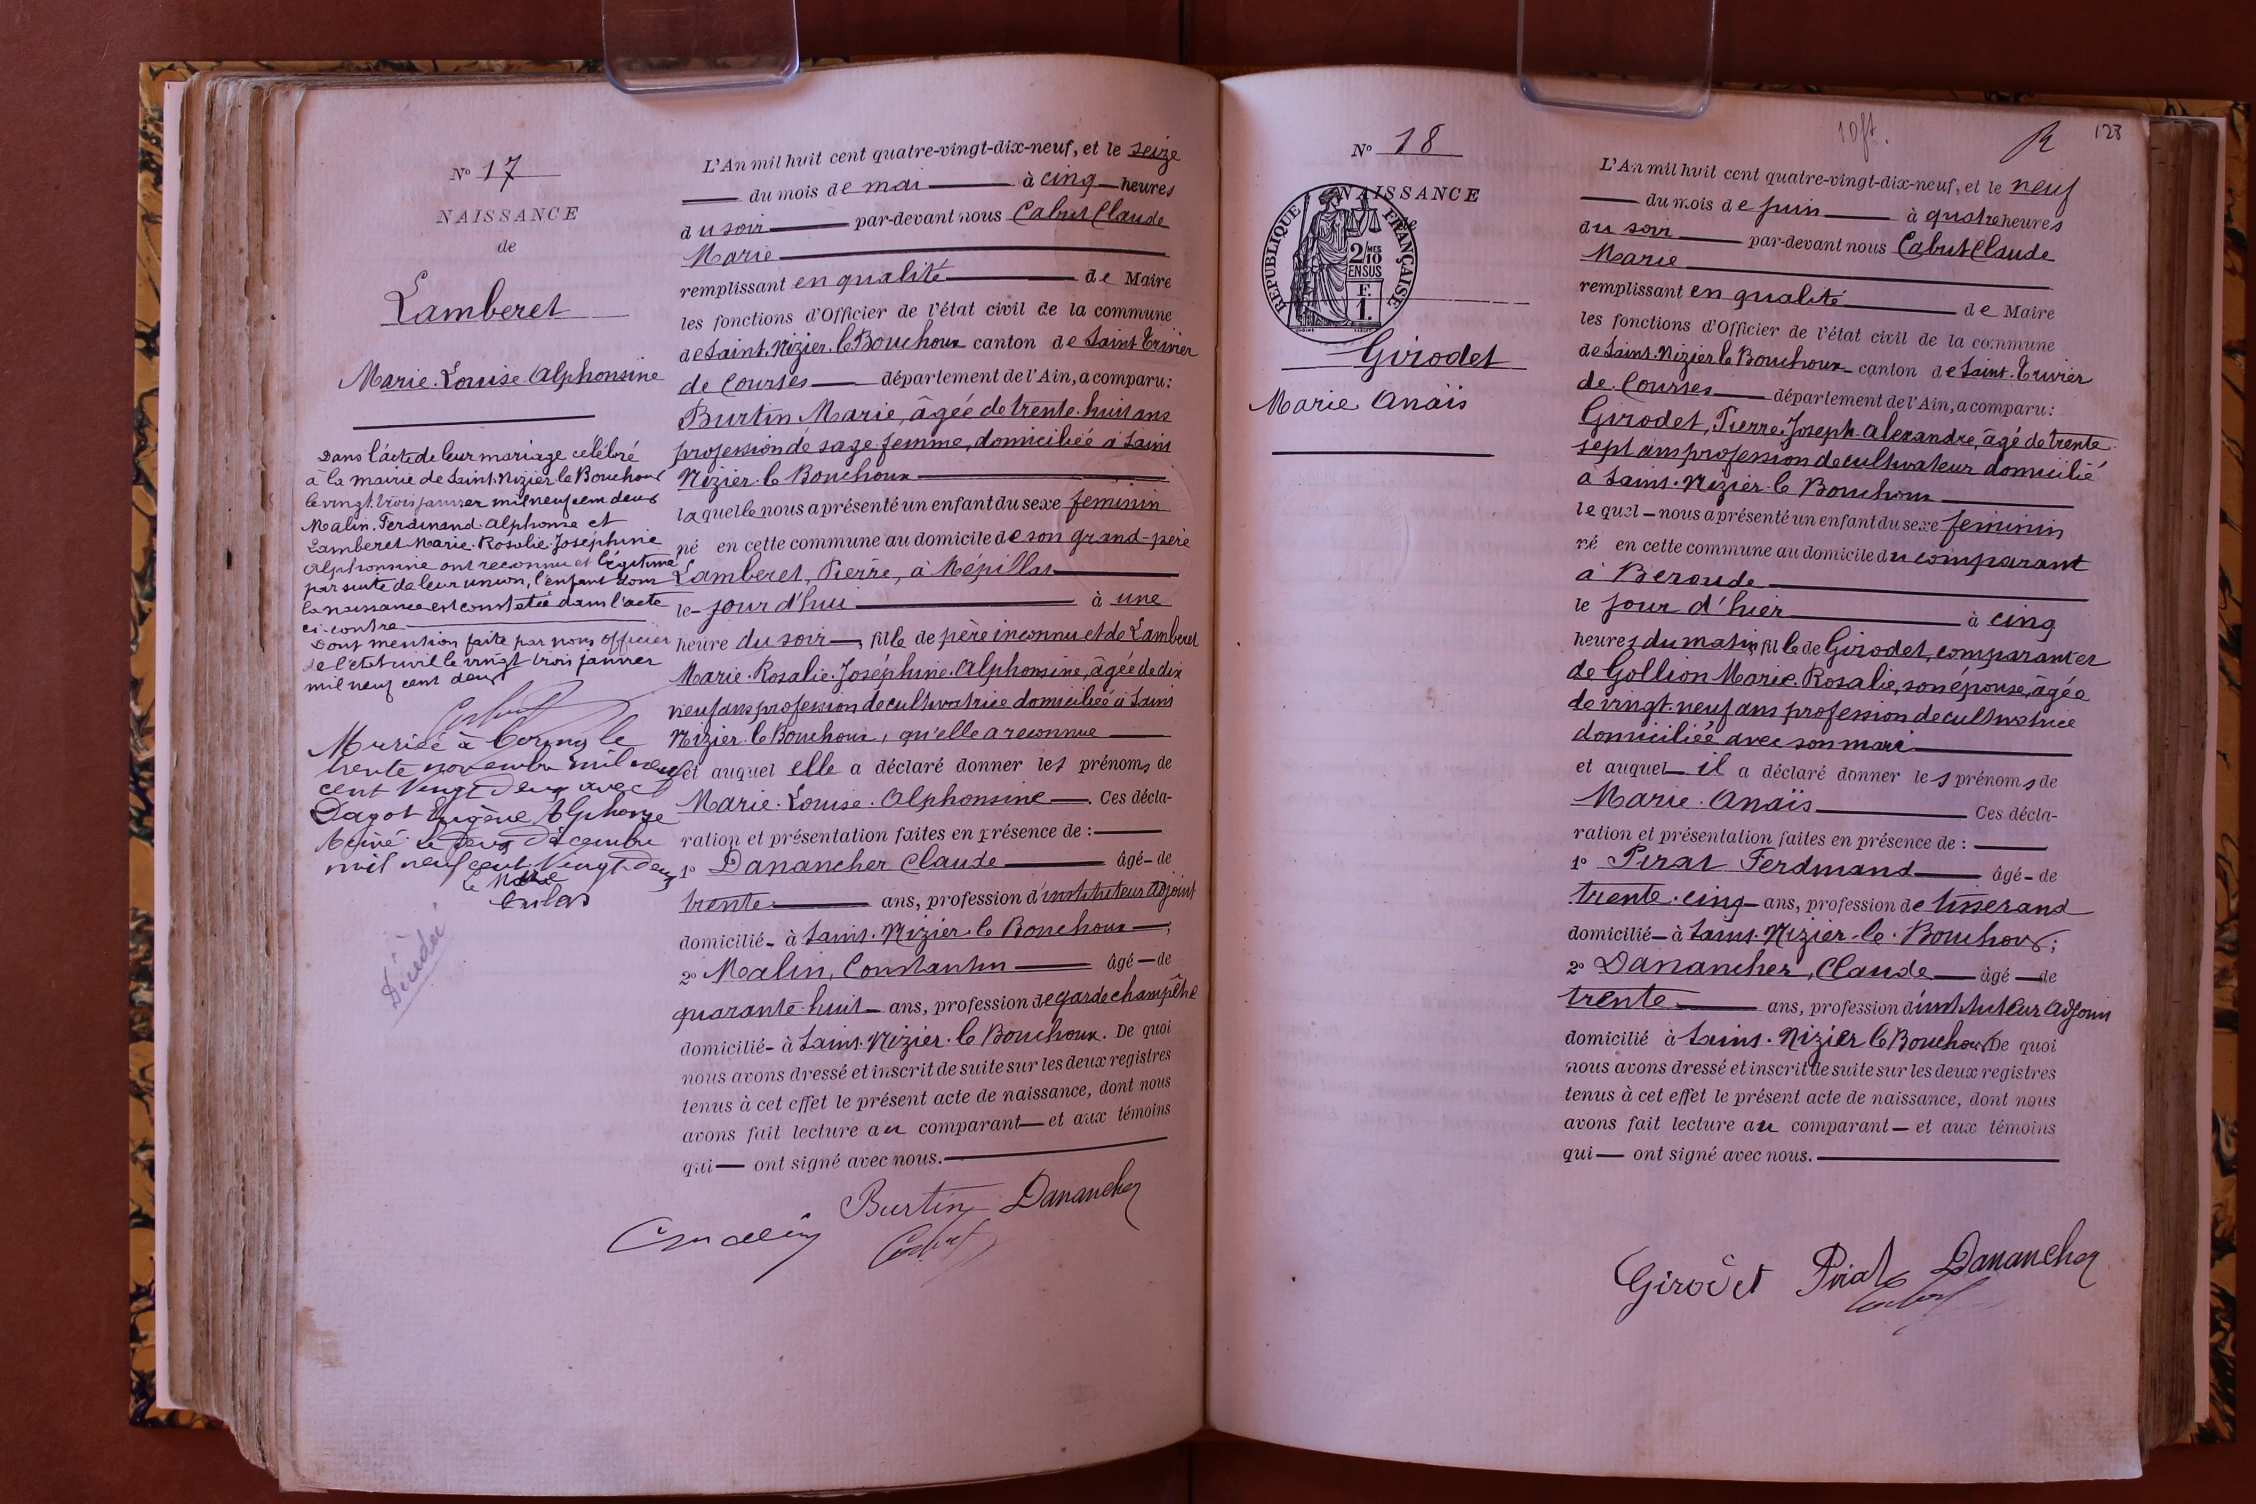 N° 17
NAISSANCE
de
Lamberet
Marie. Louise Alphonsine
Dans l'acte de leur mariage célébré
à la mairie de Saint. Nizier le Bouchoux
le vingt. trois janvier mil neuf cent deux
Malin. Ferdinand. Alphonse et
Lamberet Marie. Rosalie. Joséphine
Alphonsine ont reconnu et légitimé
par suite de leur union, l'enfant dont
la naissance est constatée dans l'acte
ci-contre
Dont mention faite par nous officier
de l'état civil le vingt trois janvier
mil neuf cent deux
Mariée à le
trente novembre mil neuf
cent vingt deux avec
Dagot Eugène Alphonse
le deux Décembre
mil neuf cent vingt-deux
le Maire
Décédée
L'An mil huit cent quatre-vingt-dix-neuf, et le seize
du mois de mai à cinq heures
du soir par-devant nous Cabut Claude
Marie
remplissant en qualité de Maire
les fonctions d'Officier de l'état civil de la commune
de Saint. Nizier. le Bouchoux canton de Saint. Trivier
de Courtes département de l'Ain, a comparu:
Burtin Marie, âgée de trente. huit ans
profession de sage. femme, domiciliée à Saint
Nizier. le Bouchoux
laquelle nous a présenté un enfant du sexe feminin
né en cette commune au domicile de son grand-père
Lamberet, Pierre, à Mépillat
le jour d'hui à une
heure du soir, fille de père inconnu et de Lamberet
Marie. Rosalie. Joséphine. Alphonsine, âgée de dix
neuf ans profession de cultivatrice domiciliée à Saint
Nizier. le Bouchoux, qu'elle a reconnue
et auquel elle a déclaré donner les prénoms de
Marie. Louise. Alphonsine. Ces décla-
ration et présentation faites en présence de :
1° Danancher Claude âgé de
trente ans, profession d'instituteur adjoint
domicilié à Saint. Nizier. le Bouchoux;
2° Malin, Constantin âgé de
quarante huit ans, profession de garde champêtre
domicilié à Saint. Nizier. le Bouchoux. De quoi
nous avons dressé et inscrit de suite sur les deux registres
tenus à cet effet le présent acte de naissance, dont nous
avons fait lecture au comparant et aux témoins
qui ont signé avec nous.
Burtin Danancher
N° 18
NAISSANCE
de
RÉPUBLIQUE FRANÇAISE
2/10 MES
EN SUS
F.
1.
Girodet
Marie Anaïs
10 ft.
R
128
L'An mil huit cent quatre-vingt-dix-neuf, et le neuf
du mois de juin à quatre heures
du soir par-devant nous Cabut Claude
Marie
remplissant en qualité de Maire
les fonctions d'Officier de l'état civil de la commune
de Saint. Nizier le Bouchoux canton de Saint. Trivier
de. Courtes département de l'Ain, a comparu:
Girodet, Pierre. Joseph. Alexandre, âgé de trente
sept ans profession de cultivateur domicilié
à Saint. Nizier. le Bouchoux
lequel nous a présenté un enfant du sexe feminin
né en cette commune au domicile du comparant
à Beroude
le jour d'hier à cinq
heures du matin fille de Girodet, comparant et
de Gollion Marie. Rosalie, son épouse, âgée
de vingt. neuf ans profession de cultivatrice
domiciliée avec son mari
et auquel il a déclaré donner les prénoms de
Marie. Anaïs Ces décla-
ration et présentation faites en présence de :
1° Pirat Ferdinand âgé de
trente. cinq ans, profession de tisserand
domicilié à Saint. Nizier. le. Bouchoux;
2° Danancher, Claude âgé de
trente ans, profession d'instituteur adjoint
domicilié à Saint. Nizier le Bouchoux De quoi
nous avons dressé et inscrit de suite sur les deux registres
tenus à cet effet le présent acte de naissance, dont nous
avons fait lecture au comparant et aux témoins
qui ont signé avec nous.
Girodet Pirat Danancher